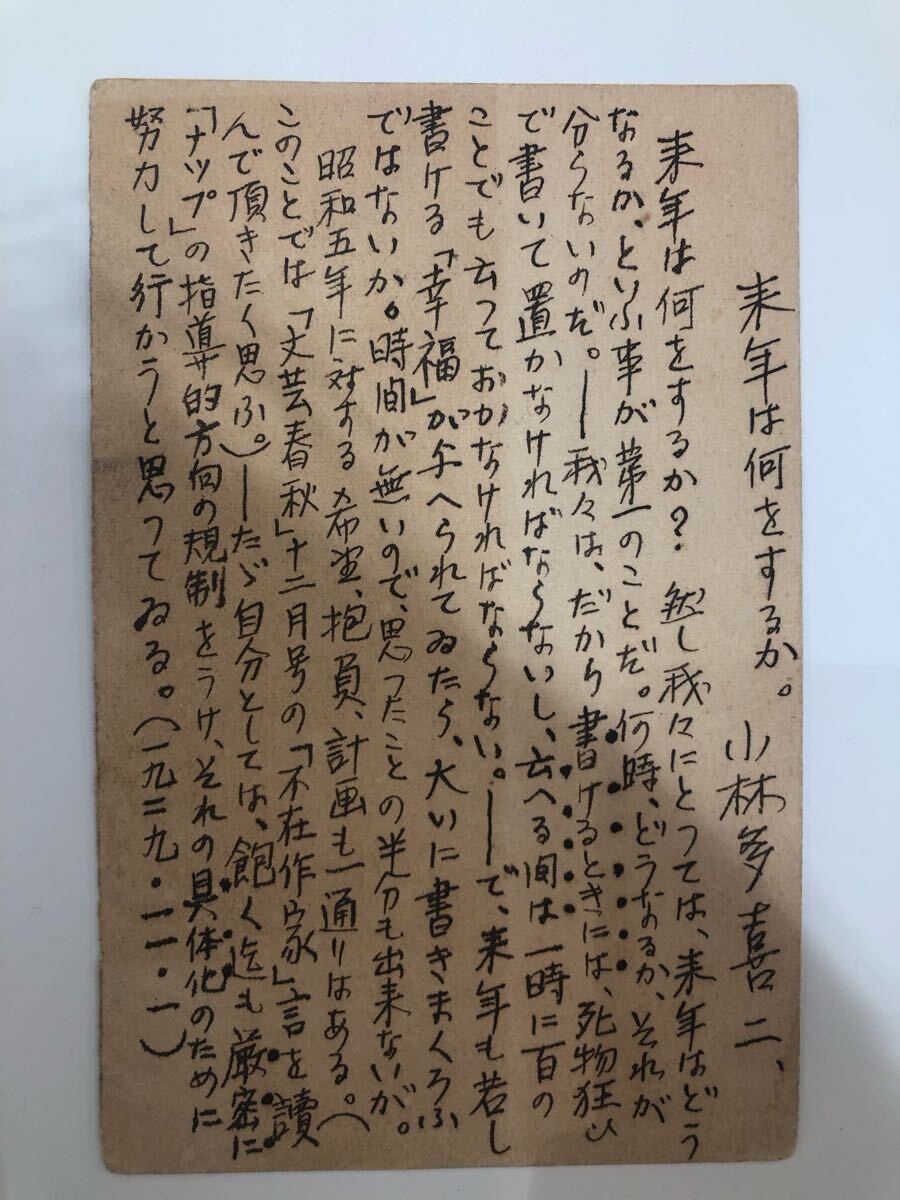 来年は何をするか。
小林多喜二、
来年は何をするか? 然し我々にとつては、来年はどう
なるか、といふ事が第一のことだ。何時、どうなるか、それが
分らないのだ。——我々は、だから書けるときには、死物狂ひ
で書いて置かなければならないし、云へる間は一時に百の
ことでも云つておかなければならない。——で、来年も若し
書ける「幸福」が与へられてゐたら、大いに書きまくろふ
ではないか。時間が無いので、思つたことの半分も出来ないが。
昭和五年に対する希望、抱負、計画も一通りはある。(
このことでは「文芸春秋」十二月号の「不在作家」言を讀
んで頂きたく思ふ。)——たゞ自分としては、飽く迄も厳密に
「ナップ」の指導的方向の規制をうけ、それの具体化のために
努力して行かうと思つてゐる。(一九二九・一一・一)